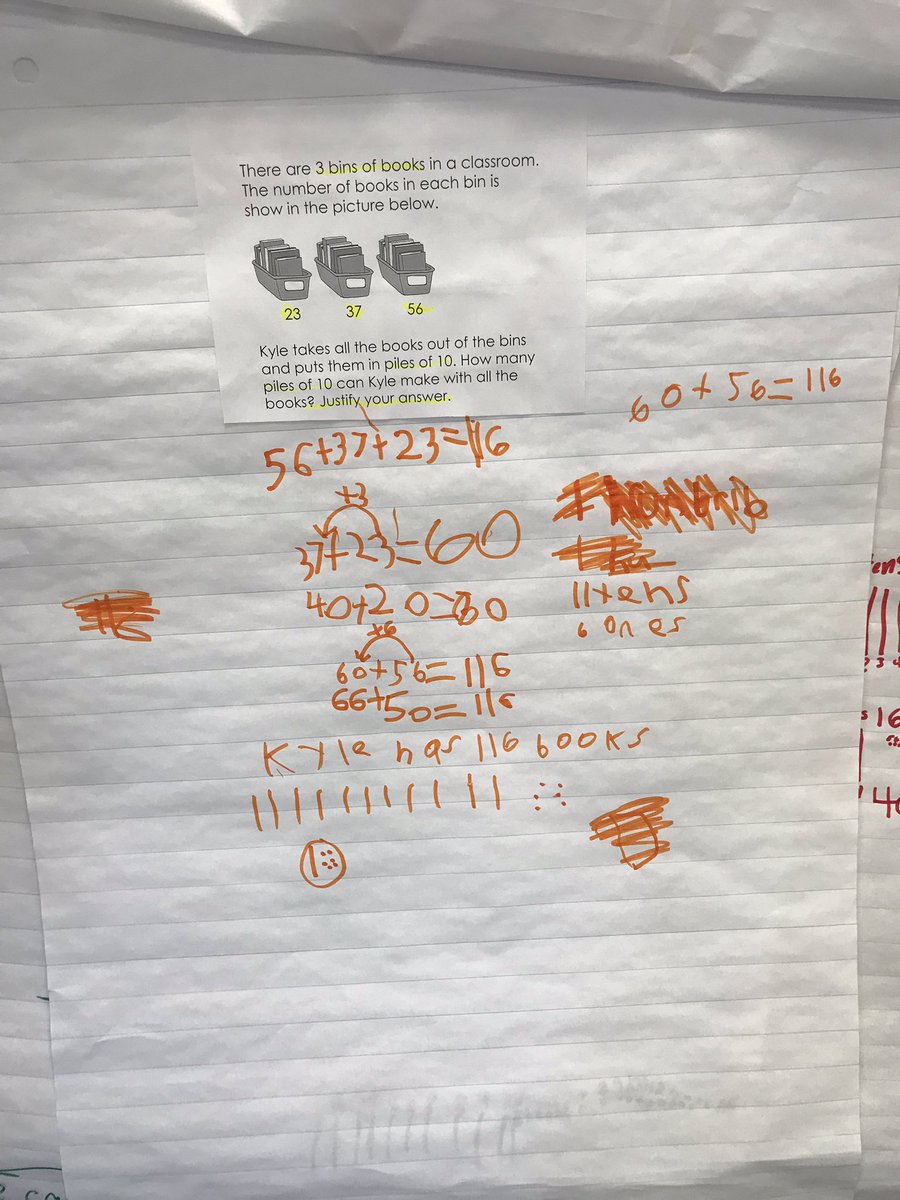 There are 3 bins of books in a classroom.
The number of books in each bin is
show in the picture below.
23 37 56
Kyle takes all the books out of the bins
and puts them in piles of 10. How many
piles of 10 can Kyle make with all the
books? Justify your answer.
60+56=116
56+37+23=116
+3
37+23=60
40+20=60
+6
60+56=116
66+50=116
11 tens
6 ones
Kyle has 116 books